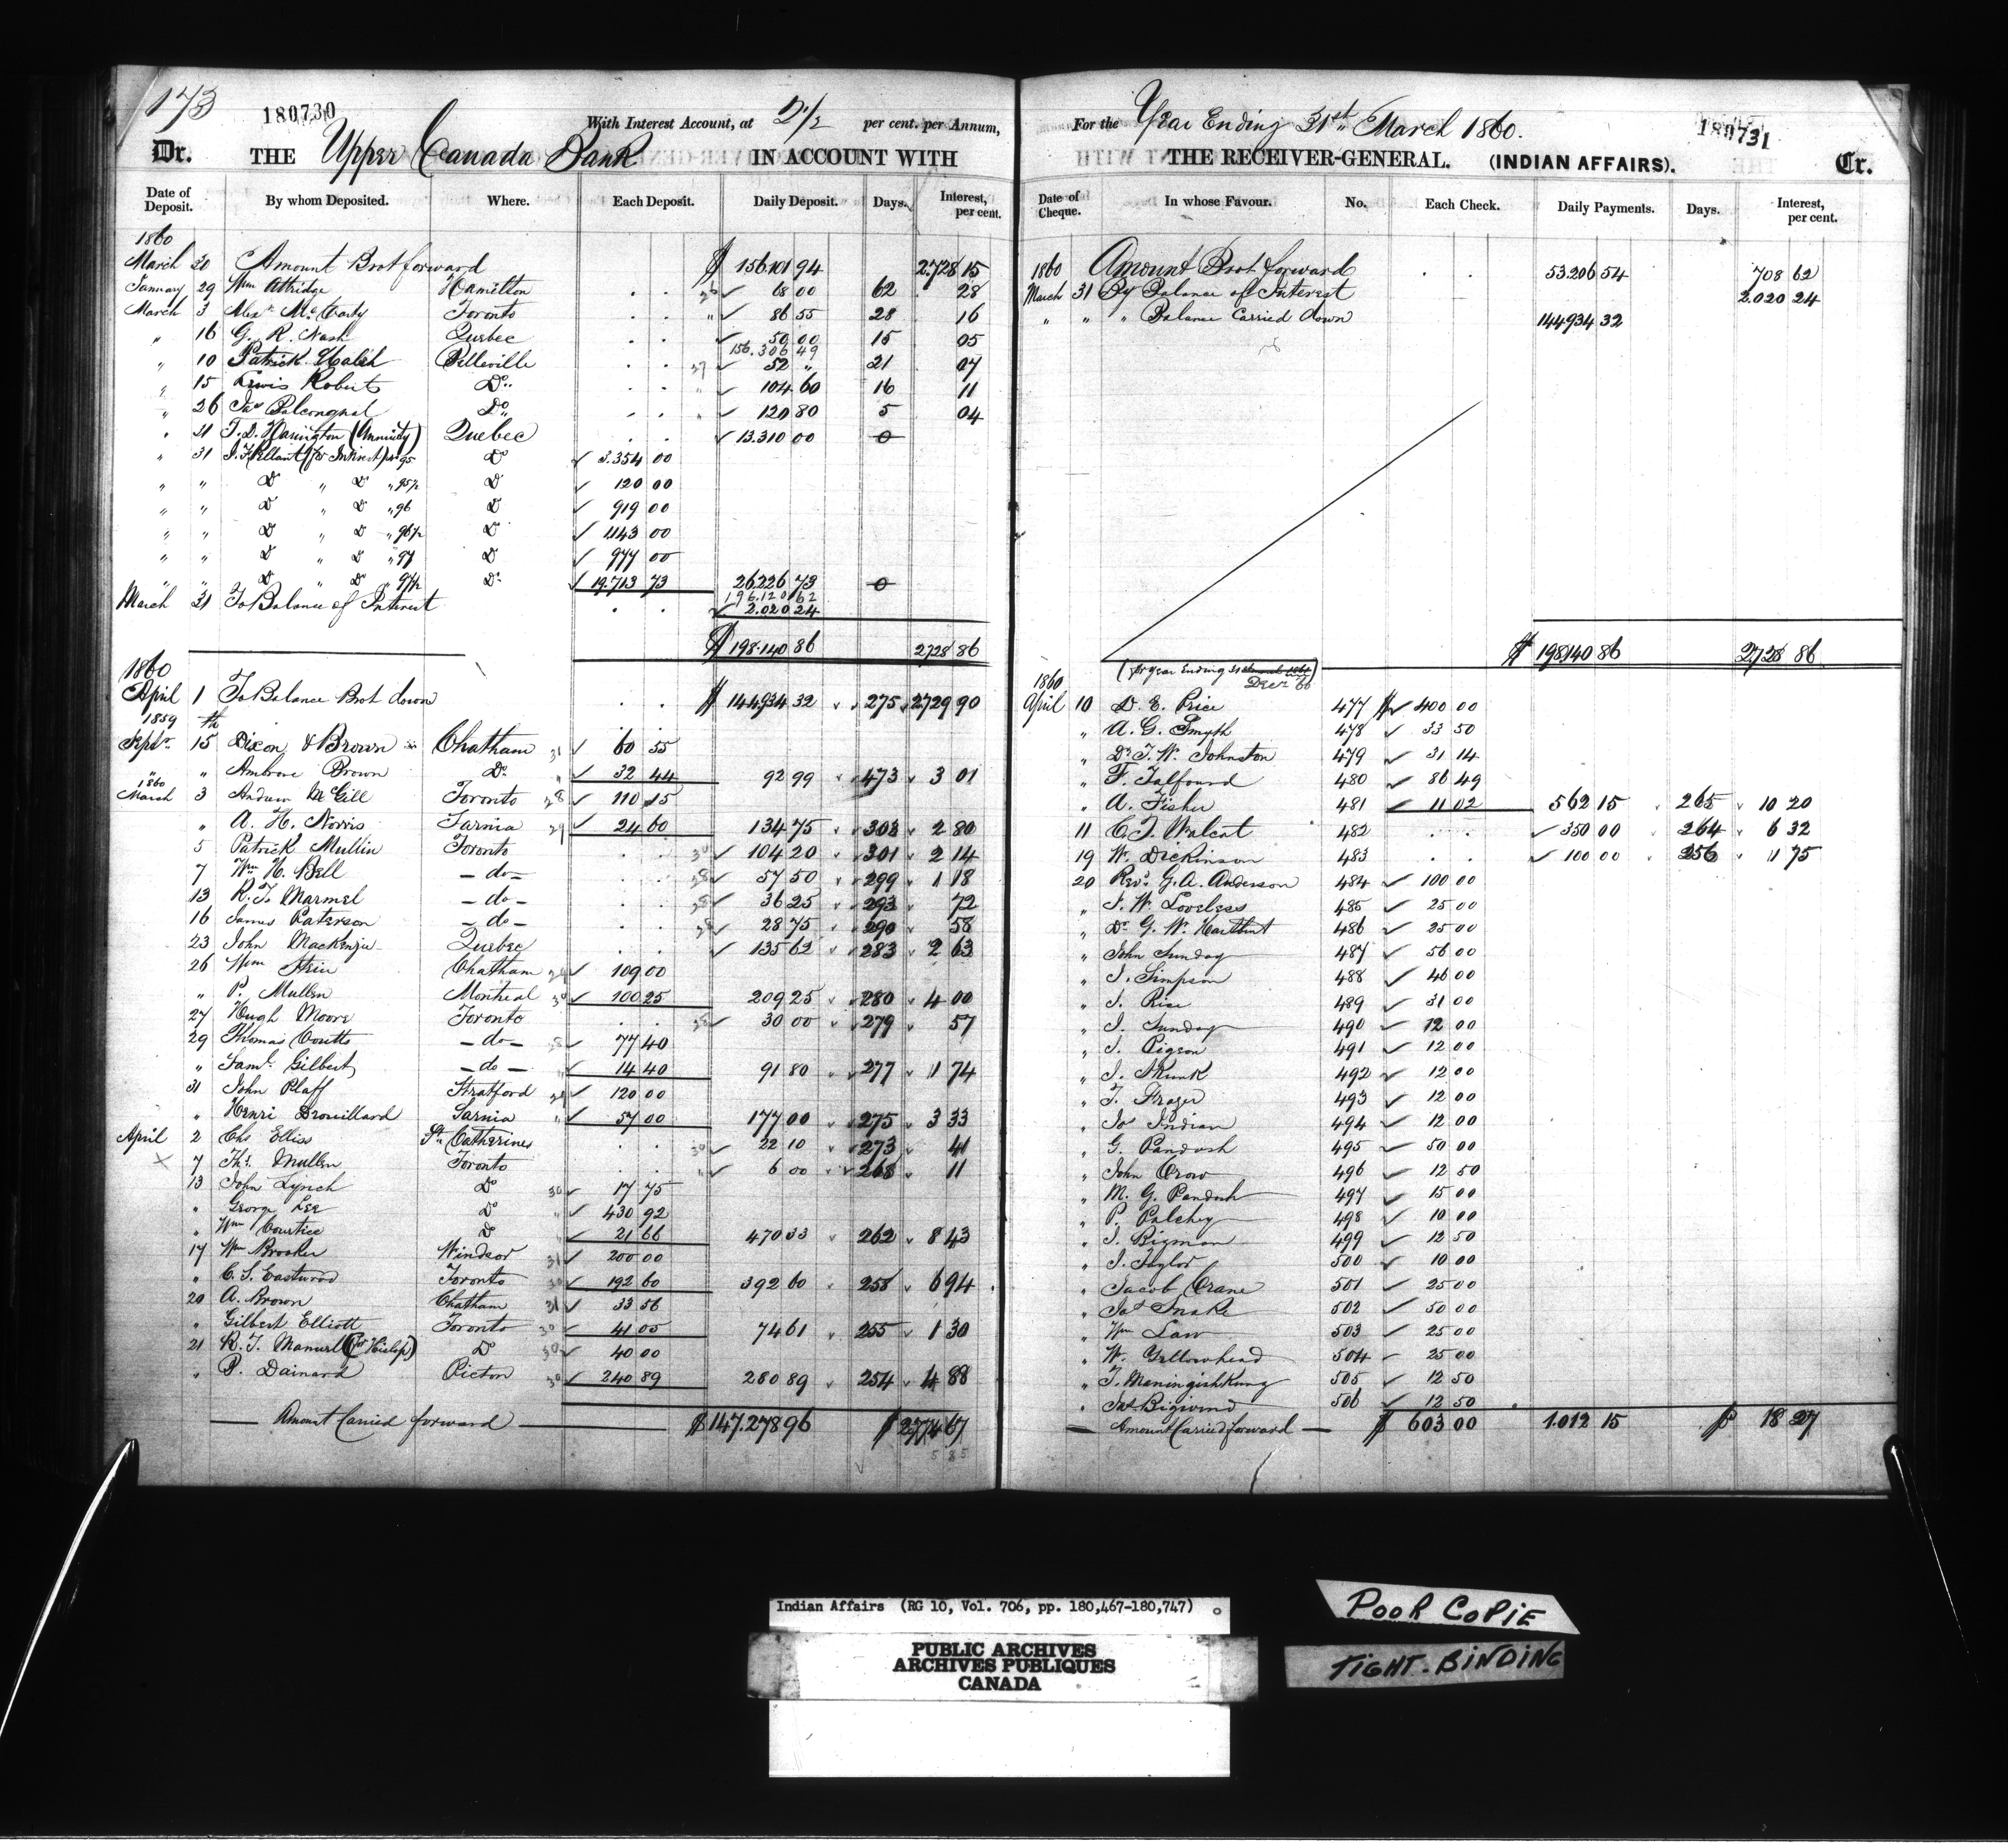 173
180730
With Interest Account, at 2 1/2 per cent. per Annum,
Dr. THE Upper Canada Bank IN ACCOUNT WITH
Date of Deposit. By whom Deposited. Where. Each Deposit. Daily Deposit. Days. Interest, per cent.
1860
March 20 Amount Brot forward $ 156.101 94 2.728 15
January 29 Wm Attridge Hamilton 68 00 62 28
March 3 Alexr McCarty Toronto 86 55 28 16
" 16 G. R. Nash Quebec 50 00 15 05
156.306 49
" 10 Patrick Belleville 52 " 21 07
" 15 Lewis Roberts Do 104 60 16 11
" 26 Jas Do 120 80 5 04
" 31 T. D. Harington (Annuity) Quebec 13.310 00 0
" 31 (for Interest) 95 Do 3.354 00
" " D " D " 95½ D 120 00
" " D " D " 96 D 919 00
" " D " D " 96½ D 1143 00
" " D " D " 97 D 977 00
" " D " Do " 97½ Do 19.713 73 26226 73 0
196.120 62
March 31 To Balance of Interest 2.020 24
$ 198.140 86 2728 86
1860
April 1 To Balance Brot down $ 144934 32 275 2729 90
1859
Septr 15th Dixon & Brown Chatham 31 60 55
" " Ambrose Brown Do " 32 44 92 99 473 3 01
1860
March 3 Andrew McGill Toronto 28 110 15
" A. H. Norris Sarnia 29 24 60 134 75 303 2 80
5 Patrick Mullin Toronto 30 104 20 301 2 14
7 Wm H. Bell - do - 28 57 50 299 1 18
13 R. T. Marmel - do - 28 36 25 293 72
16 James Paterson - do - 28 28 75 290 58
23 John Mackenzie Quebec 135 62 283 2 63
26 Wm Chatham 29 109 00
" P. Mullen Montreal 30 100 25 209 25 280 4 00
27 Hugh Moore Toronto 28 30 00 279 57
29 Thomas Coutts - do - 28 77 40
" Saml Gilbert - do - " 14 40 91 80 277 1 74
31 John Plaff Stratford 29 120 00
" Henri Drouillard Sarnia " 57 00 177 00 275 3 33
April 2 Chs Elliss St Catherines 30 22 10 273 41
7 Ths Mullen Toronto " 6 00 268 11
13 John Lynch Do 30 17 75
" George Lee Do " 430 92
" Wm Courtice Do " 21 66 470 33 262 8 43
17 Wm Brooker Windsor 31 200 00
" C. S. Eastwood Toronto 30 192 60 392 60 258 6 94
20 A. Brown Chatham 31 33 56
" Gilbert Elliott Toronto 30 41 05 74 61 255 1 30
21 R. T. Manuel (for Hislop) Do 30 40 00
" P. Dainard Picton 30 240 89 280 89 254 4 88
Amount Carried forward $ 147.278 96 $ 2774 67
5 85
For the Year Ending 31st March 1860.
180731
THE RECEIVER-GENERAL. (INDIAN AFFAIRS). Cr.
Date of Cheque. In whose Favour. No. Each Check. Daily Payments. Days. Interest, per cent.
1860 Amount Brot forward 53.206 54 708 62
March 31 By Balance of Interest 2.020 24
" " " Balance Carried down 144934 32
$ 198140 86 2728 86
(for year Ending 31 March 1861)
Decr 60
1860
April 10 D. E. Price 477 $ 400 00
" A. G. Smyth 478 33 50
" Dr T. W. Johnston 479 31 14
" F. Talfourd 480 86 49
" A. Fisher 481 11 02 562 15 265 10 20
11 C. T. Walcot 482 350 00 264 6 32
19 W. Dickinson 483 100 00 256 1 75
20 Revd G. A. Anderson 484 100 00
" J. W. Loveless 485 25 00
" Dr G. W. 486 25 00
" John Sunday 487 56 00
" J. Simpson 488 46 00
" J. Rice 489 31 00
" J. Sunday 490 12 00
" J. Pigeon 491 12 00
" J. Skunk 492 12 00
" T. Frazer 493 12 00
" Jos Indian 494 12 00
" G. Pandash 495 50 00
" John Crow 496 12 50
" M. G. Pandash 497 15 00
" P. Palchey 498 10 00
" J. Bigman 499 12 50
" J. Taylor 500 10 00
" Jacob Crane 501 25 00
" Jas Snake 502 50 00
" Wm Law 503 25 00
" W. Yellowhead 504 25 00
" J. Meningishkung 505 12 50
" Jas Bigwind 506 12 50
Amount Carried forward $ 603 00 1.012 15 $ 18 27
Indian Affairs (RG 10, Vol. 706, pp. 180,467-180,747)
PUBLIC ARCHIVES
ARCHIVES PUBLIQUES
CANADA
POOR COPIE
TIGHT-BINDING